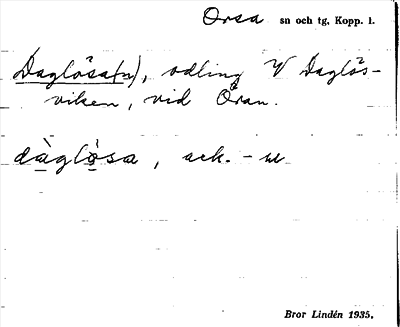 Orsa sn och tg, Kopp. l.
Daglösa(n), odling V Daglös-
viken, vid Öran.
dàglö̀sa, ack. -w
Bror Lindén 1935.